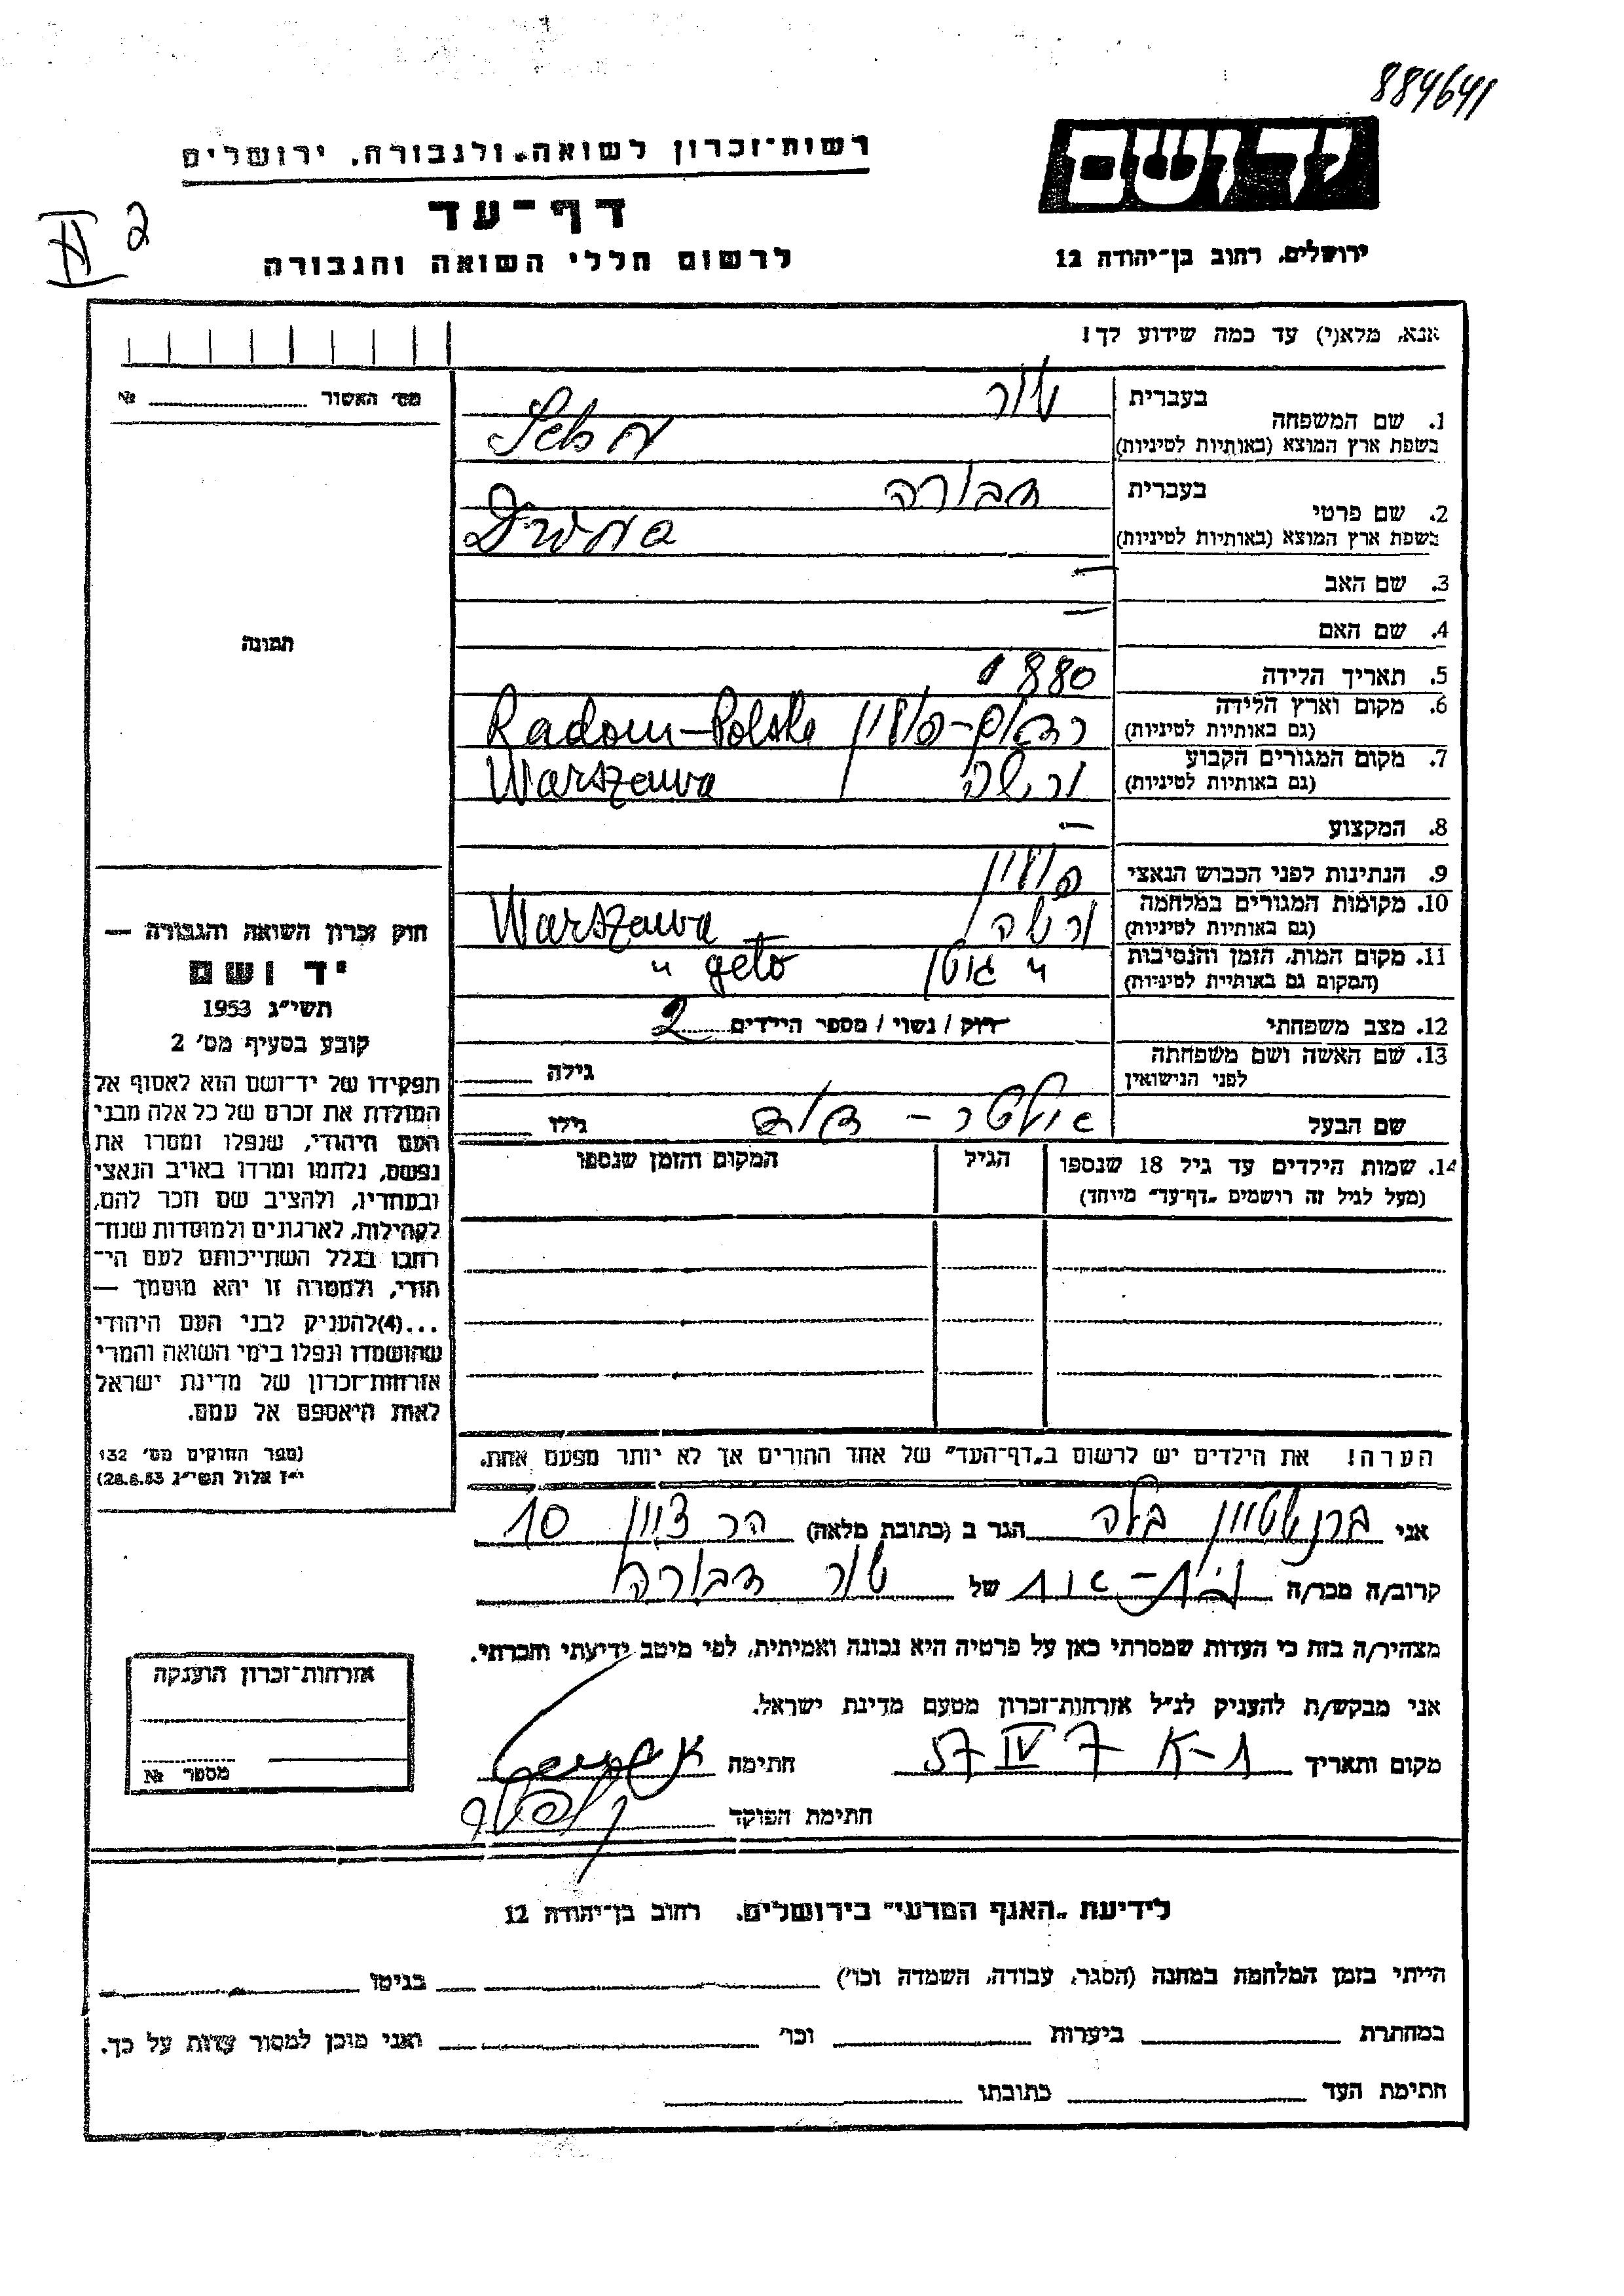 884641
יד ושם
רשות-זכרון לשואה ולגבורה, ירושלים
דף-עד
לרשום חללי השואה והגבורה
ירושלים, רחוב בן-יהודה 12
II 2
אנא, מלא(י) עד כמה שידוע לך!
מס׳ האשור № 
1. שם המשפחה
בעברית
בשפת ארץ המוצא (באותיות לטיניות)
2. שם פרטי
בעברית דבורה
בשפת ארץ המוצא (באותיות לטיניות)
3. שם האב —
4. שם האם —
תמונה
5. תאריך הלידה 1880
6. מקום וארץ הלידה רדום-פולין Radom-Polska
(גם באותיות לטיניות)
7. מקום המגורים הקבוע ורשה Warszawa
(גם באותיות לטיניות)
8. המקצוע —
9. הנתינות לפני הכבוש הנאצי פולין
10. מקומות המגורים במלחמה ורשה Warszawa
(גם באותיות לטיניות)
11. מקום המות, הזמן והנסיבות " גיטו " geto
(המקום גם באותיות לטיניות)
12. מצב משפחתי רווק / נשוי / מספר הילדים 2
13. שם האשה ושם משפחתה גילה
לפני הנישואין
שם הבעל גילו
14. שמות הילדים עד גיל 18 שנספו הגיל המקום והזמן שנספו
(מעל לגיל זה רושמים „דף-עד" מיוחד)
חוק זכרון השואה והגבורה —
יד ושם
תשי״ג 1953
קובע בסעיף מס׳ 2
תפקידו של יד-ושם הוא לאסוף אל
המולדת את זכרם של כל אלה מבני
העם היהודי, שנפלו ומסרו את
נפשם, נלחמו ומרדו באויב הנאצי
ובעוזריו, ולהציב שם וזכר להם,
לקהילות, לארגונים ולמוסדות שנח-
רבו בגלל השתייכותם לעם הי-
הודי, ולמטרה זו יהא מוסמך —
...(4)להעניק לבני העם היהודי
שהושמדו ונפלו בימי השואה והמרי
אזרחות-זכרון של מדינת ישראל
לאות היאספם אל עמם.
(ספר החוקים מס׳ 132
י״ז אלול תשי״ג 28.8.53)
הערה! את הילדים יש לרשום ב„דף-העד" של אחד ההורים אך לא יותר מפעם אחת.
אני ברנשטיין בלה הגר ב (כתובת מלאה) הר ציון 10
קרוב/ה מכר/ה של דבורה
מצהיר/ה בזה כי העדות שמסרתי כאן על פרטיה היא נכונה ואמיתית, לפי מיטב ידיעתי והכרתי.
אני מבקש/ת להעניק לנ״ל אזרחות-זכרון מטעם מדינת ישראל.
מקום ותאריך ת-א 7 IV 57 חתימה
חתימת הפוקד
אזרחות-זכרון הוענקה
מספר №
לידיעת „האגף המדעי" בירושלים, רחוב בן-יהודה 12
הייתי בזמן המלחמה במחנה (הסגר, עבודה, השמדה וכו׳) בגיטו
במחתרת ביערות וכו׳ ואני מוכן למסור עדות על כך.
חתימת העד כתובתו